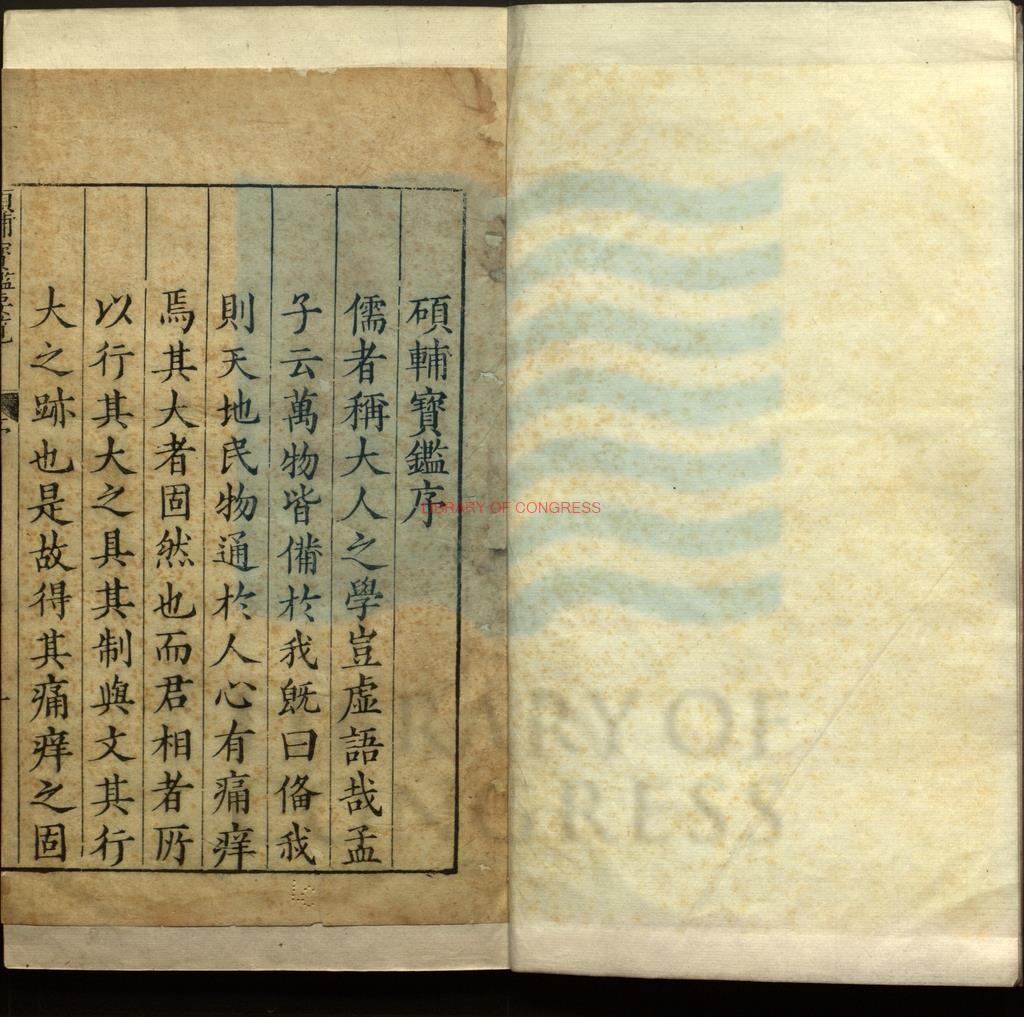 碩輔寶鑑序
儒者稱大人之學豈虛語哉孟
子云萬物皆備於我既曰俻我
則天地民物通於人心有痛痒
焉其大者固然也而君相者所
以行其大之具其制與文其行
大之跡也是故得其痛痒之固
碩輔寶鑑要覽
LIBRARY OF CONGRESS